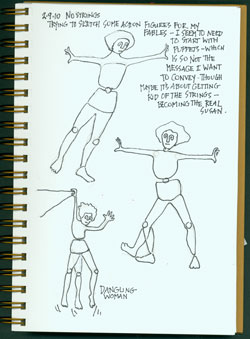 2·9·10 NO STRINGS
TRYING TO SKETCH SOME ACTION FIGURES FOR MY
FABLES – I SEEM TO NEED
TO START WITH
PUPPETS – WHICH
IS SO NOT THE
MESSAGE I WANT
TO CONVEY – THOUGH
MAYBE IT'S ABOUT GETTING
RID OF THE STRINGS –
BECOMING THE REAL
SUSAN.
DANGLING
WOMAN